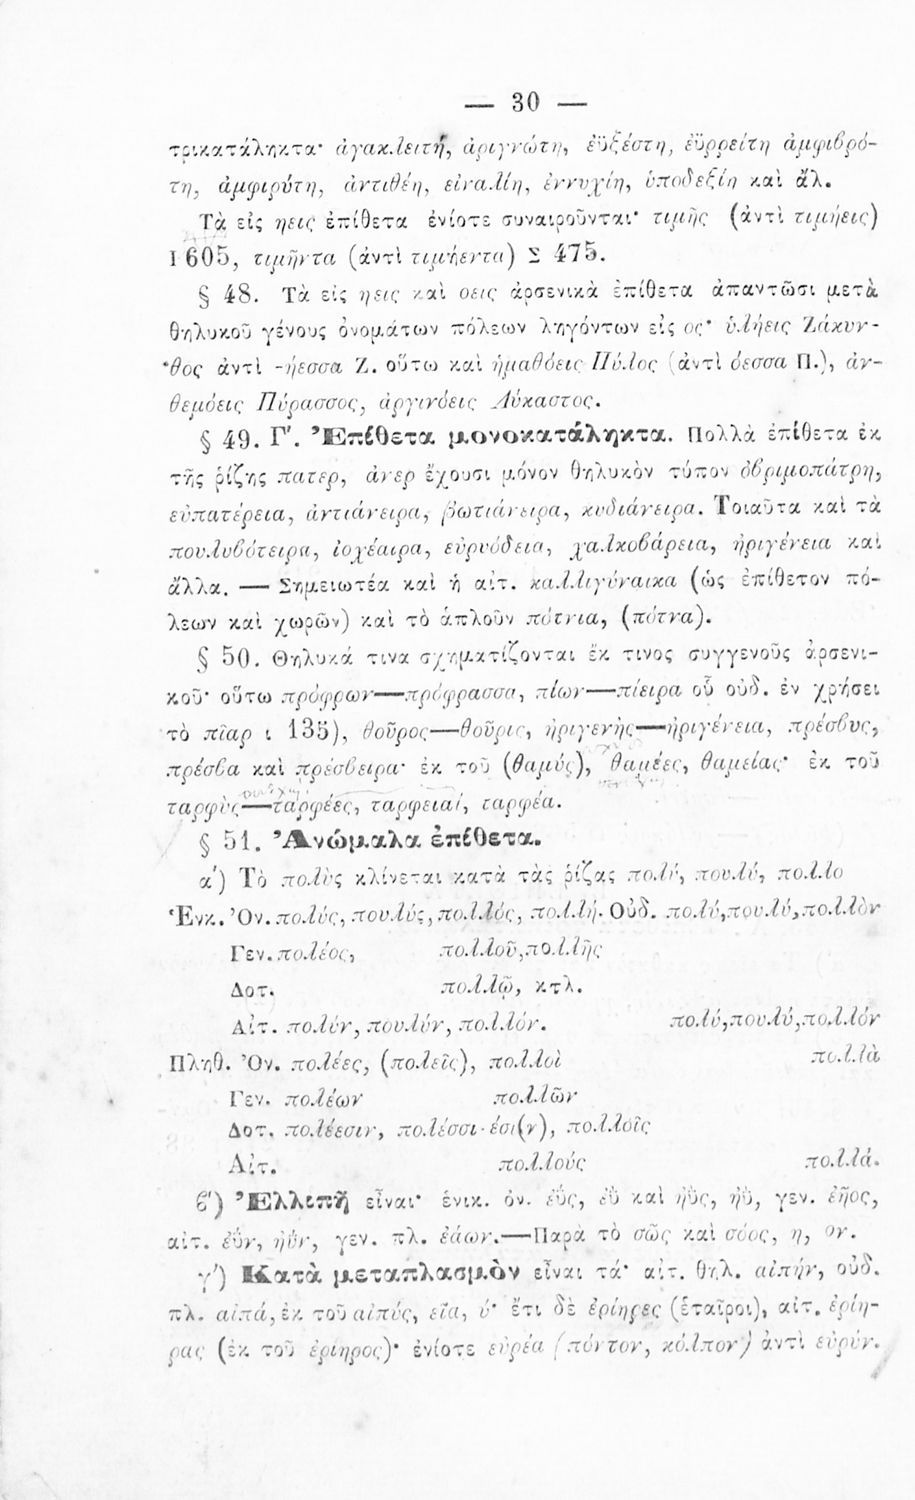 — 30 —
τρικατάληκτα· ἀγακλειτή, ἀριγνώτη, ἐϋξέστη, ἐϋρρείτη ἀμφιβρό-
τη, ἀμφιρύτη, ἀντιθέη, εἰναλίη, ἐννυχίη, ὑποδεξίη καὶ ἄλ.
Τὰ εἰς ηεις ἐπίθετα ἐνίοτε συναιροῦνται· τιμῆς (ἀντὶ τιμήεις)
Ι 605, τιμῆντα (ἀντὶ τιμήεντα) Σ 475.
§ 48. Τὰ εἰς ηεις καὶ οεις ἀρσενικὰ ἐπίθετα ἀπαντῶσι μετὰ
θηλυκοῦ γένους ὀνομάτων πόλεων ληγόντων εἰς ος· ὑλήεις Ζάκυν-
θος ἀντὶ -ήεσσα Ζ. οὕτω καὶ ἠμαθόεις Πύλος (ἀντὶ όεσσα Π.), ἀν-
θεμόεις Πύρασσος, ἀργινόεις Λύκαστος.
§ 49. Γ'. Ἐπίθετα μονοκατάληκτα. Πολλὰ ἐπίθετα ἐκ
τῆς ῥίζης πατερ, ἀνερ ἔχουσι μόνον θηλυκὸν τύπον ὀβριμοπάτρη,
εὐπατέρεια, ἀντιάνειρα, βωτιάνειρα, κυδιάνειρα. Τοιαῦτα καὶ τὰ
πουλυβότειρα, ἰοχέαιρα, εὐρυόδεια, χαλκοβάρεια, ἠριγένεια καὶ
ἄλλα. — Σημειωτέα καὶ ἡ αἰτ. καλλιγύναικα (ὡς ἐπίθετον πό-
λεων καὶ χωρῶν) καὶ τὸ ἁπλοῦν πότνια, (πότνα).
§ 50. Θηλυκά τινα σχηματίζονται ἔκ τινος συγγενοῦς ἀρσενι-
κοῦ· οὕτω πρόφρων—πρόφρασσα, πίων—πίειρα οὗ οὐδ. ἐν χρήσει
τὸ πῖαρ ι 135), θοῦρος—θοῦρις, ἠριγενὴς—ἠριγένεια, πρέσβυς,
πρέσβα καὶ πρέσβειρα· ἐκ τοῦ (θαμύς), θαμέες, θαμείας· ἐκ τοῦ
ταρφὺς—ταρφέες, ταρφειαί, ταρφέα.
§ 51. Ἀνώμαλα ἐπίθετα.
α') Τὸ πολὺς κλίνεται κατὰ τὰς ῥίζας πολύ, πουλύ, πολλο
Ἑνκ. Ὀν. πολύς, πουλύς, πολλός, πολλή. Οὐδ. πολύ, πουλύ, πολλὸν
Γεν. πολέος, πολλοῦ, πολλῆς
Δοτ. πολλῷ, κτλ.
Αἰτ. πολύν, πουλύν, πολλόν. πολύ, πουλύ, πολλόν
Πληθ. Ὀν. πολέες, (πολεῖς), πολλοὶ πολλὰ
Γεν. πολέων πολλῶν
Δοτ. πολέεσιν, πολέσσι-έσι(ν), πολλοῖς
Αἰτ. πολλούς πολλά.
ϐ') Ἐλλιπῆ εἶναι· ἑνικ. ὀν. ἐΰς, ἐΰ καὶ ἠΰς, ἠΰ, γεν. ἐῆος,
αἰτ. ἐΰν, ἠΰν, γεν. πλ. ἐάων.—Παρὰ τὸ σῶς καὶ σόος, η, ον.
γ') Κατὰ μεταπλασμὸν εἶναι τά· αἰτ. θηλ. αἰπήν, οὐδ.
πλ. αἰπά, ἐκ τοῦ αἰπύς, εῖα, ύ· ἔτι δὲ ἐρίηρες (ἑταῖροι), αἰτ. ἐρίη-
ρας (ἐκ τοῦ ἐρίηρος)· ἐνίοτε εὐρέα (πόντον, κόλπον) ἀντὶ εὐρύν.